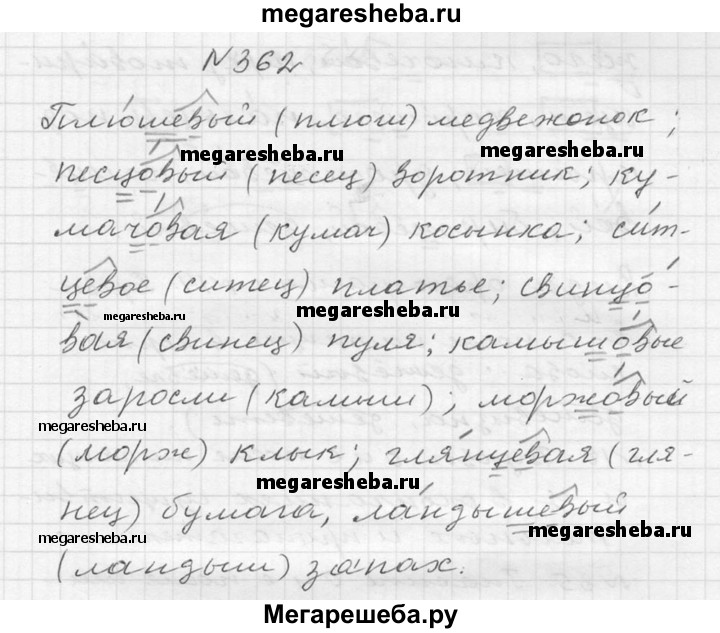 megaresheba.ru
N 362
Плюшевый (плюш) медвежонок;
megaresheba.ru
megaresheba.ru
песцовый (песец) воротник; ку-
мачовая (кумач) косынка; сит-
цевое (ситец) платье; свинцо-
megaresheba.ru
megaresheba.ru
вая (свинец) пуля; камышовые
заросли (камыш); моржовый
megaresheba.ru
(морж) клык; глянцевая (гля-
megaresheba.ru
нец) бумага, ландышевый
megaresheba.ru
megaresheba.ru
(ландыш) запах.
Мегарешеба.ру